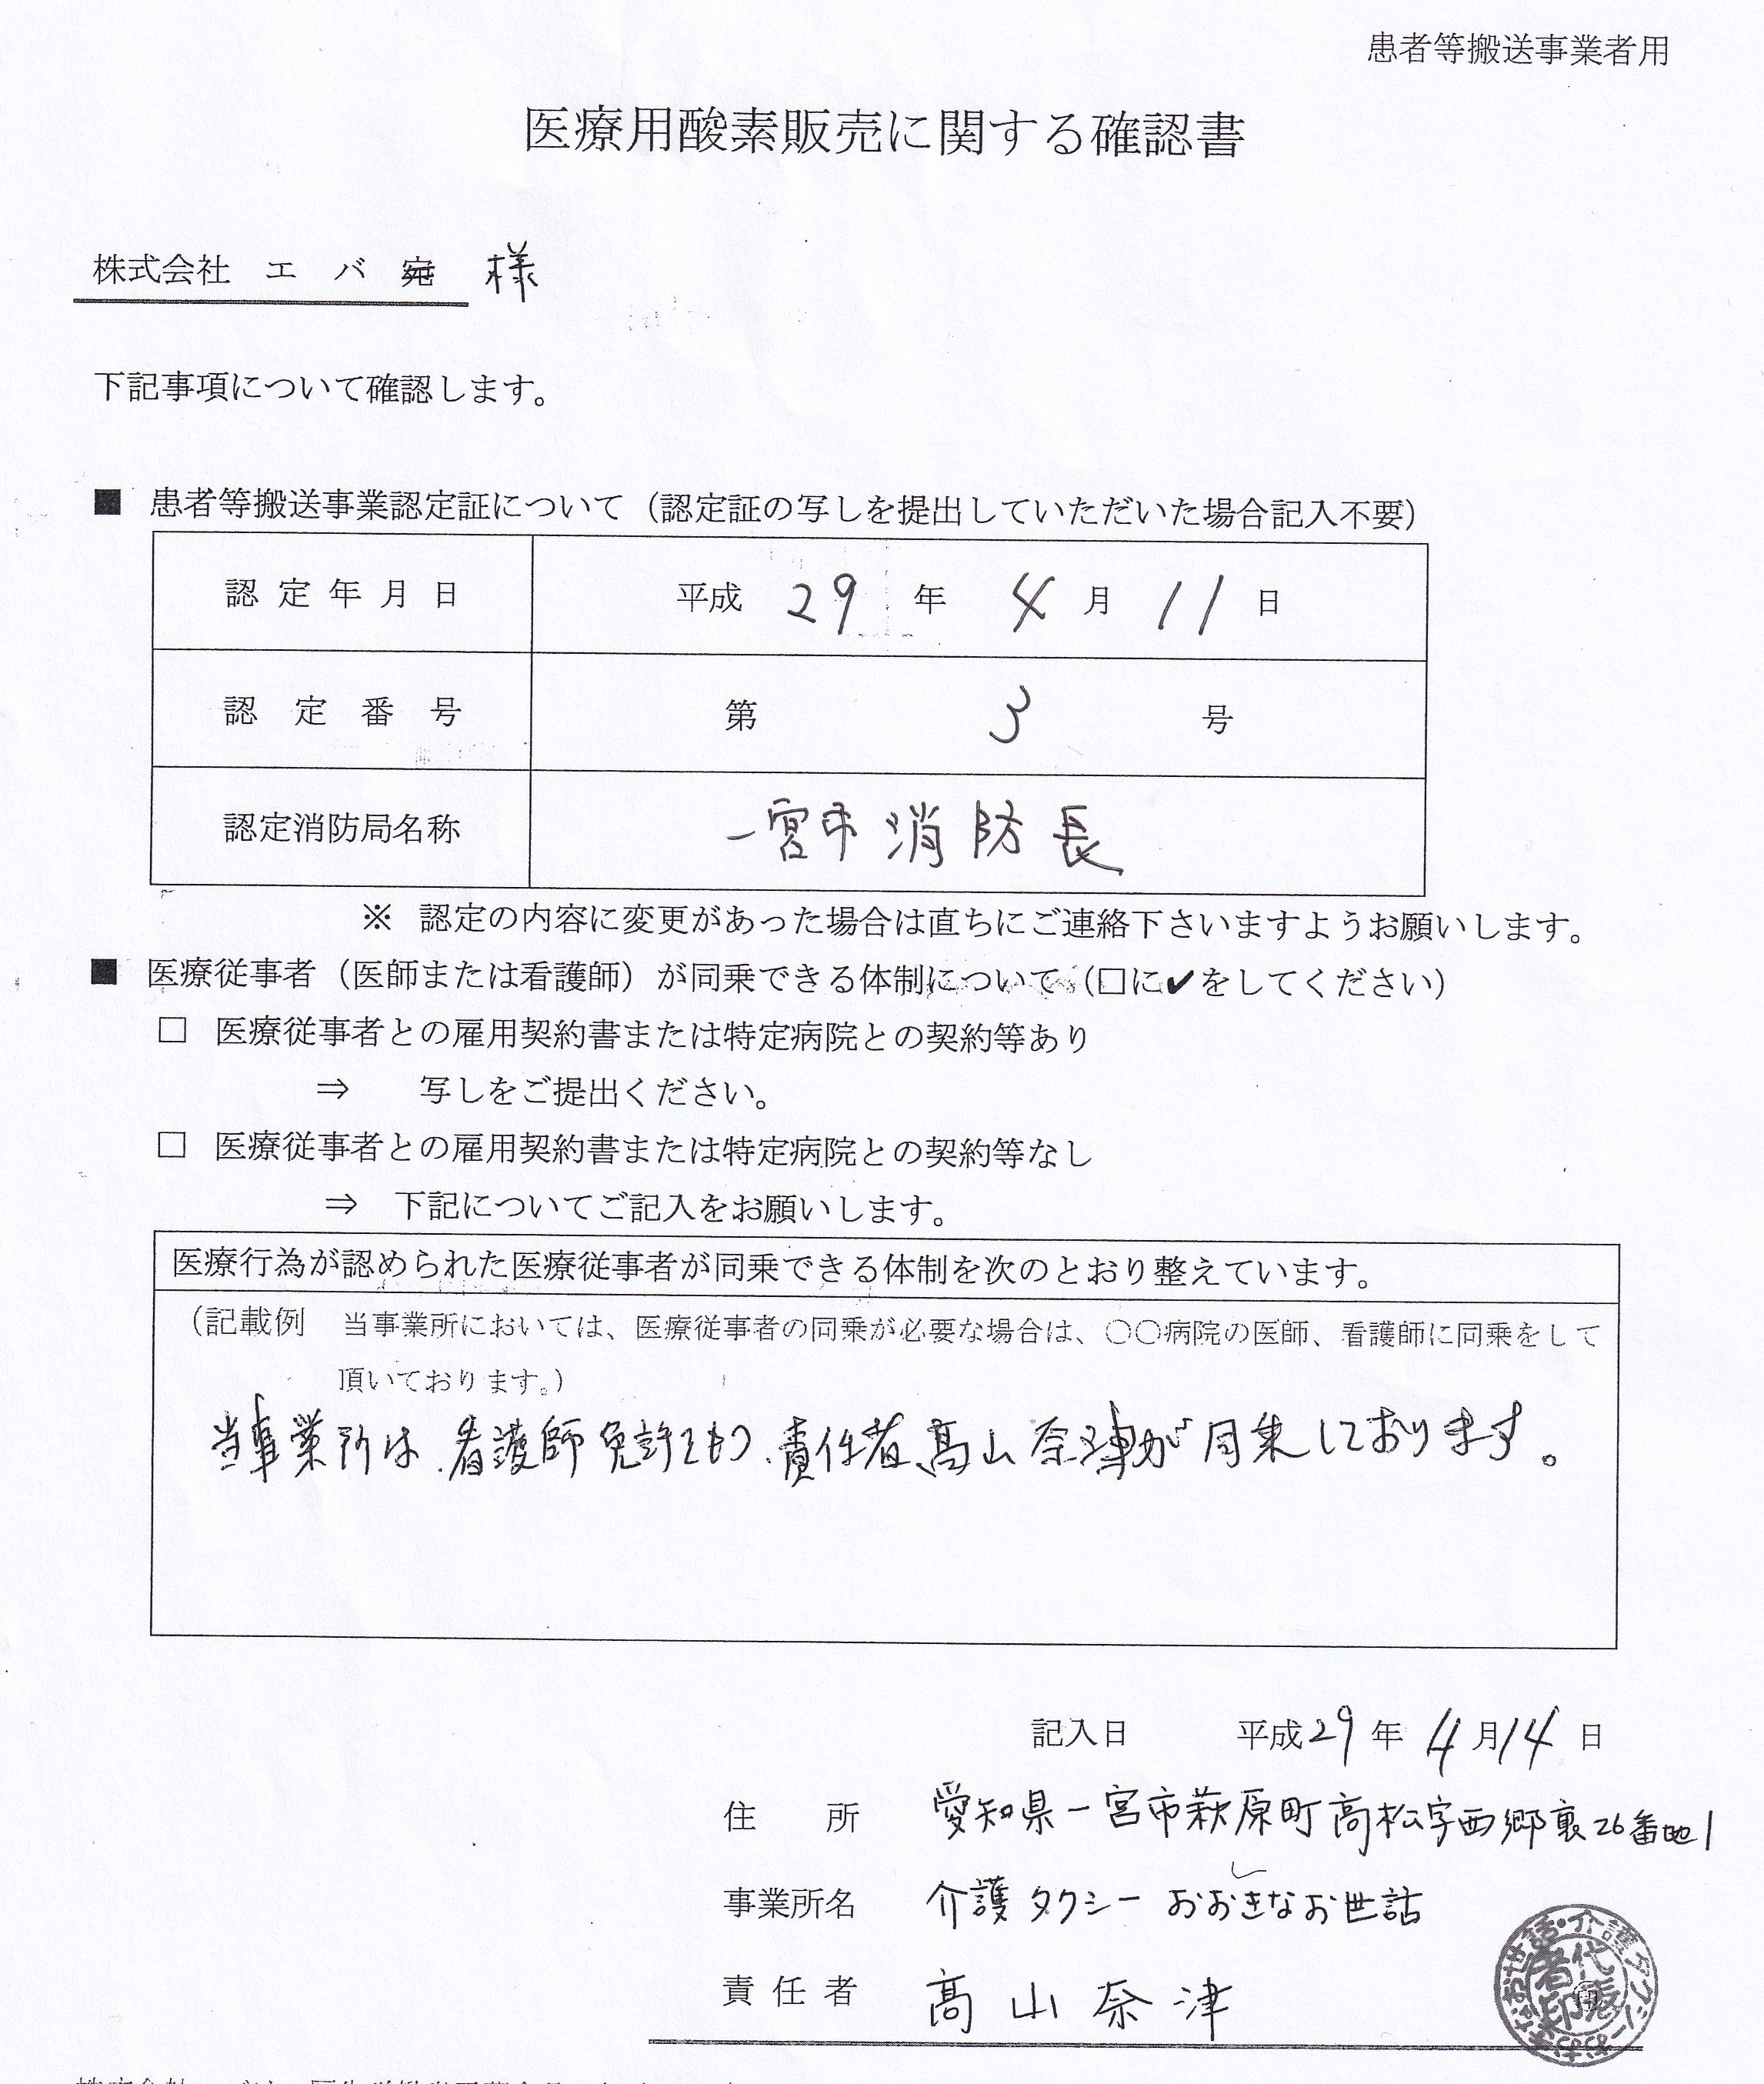 患者等搬送事業者用
医療用酸素販売に関する確認書
株式会社 エ バ 宛 様
下記事項について確認します。
■ 患者等搬送事業認定証について（認定証の写しを提出していただいた場合記入不要）
認定年月日 平成 29 年 4 月 11 日
認定番号 第 3 号
認定消防局名称 一宮市消防長
※ 認定の内容に変更があった場合は直ちにご連絡下さいますようお願いします。
■ 医療従事者（医師または看護師）が同乗できる体制について（□に✔をしてください）
□ 医療従事者との雇用契約書または特定病院との契約等あり
⇒ 写しをご提出ください。
□ 医療従事者との雇用契約書または特定病院との契約等なし
⇒ 下記についてご記入をお願いします。
医療行為が認められた医療従事者が同乗できる体制を次のとおり整えています。
（記載例 当事業所においては、医療従事者の同乗が必要な場合は、〇〇病院の医師、看護師に同乗をして
頂いております。）
当事業所は、看護師免許をもつ、責任者、髙山奈津が同乗しております。
記入日 平成29年 4月14日
住所 愛知県一宮市萩原町高松字西郷裏26番地1
事業所名 介護タクシー おおきなお世話
責任者 髙山奈津
介護タクシーおおきなお世話・
代表者印